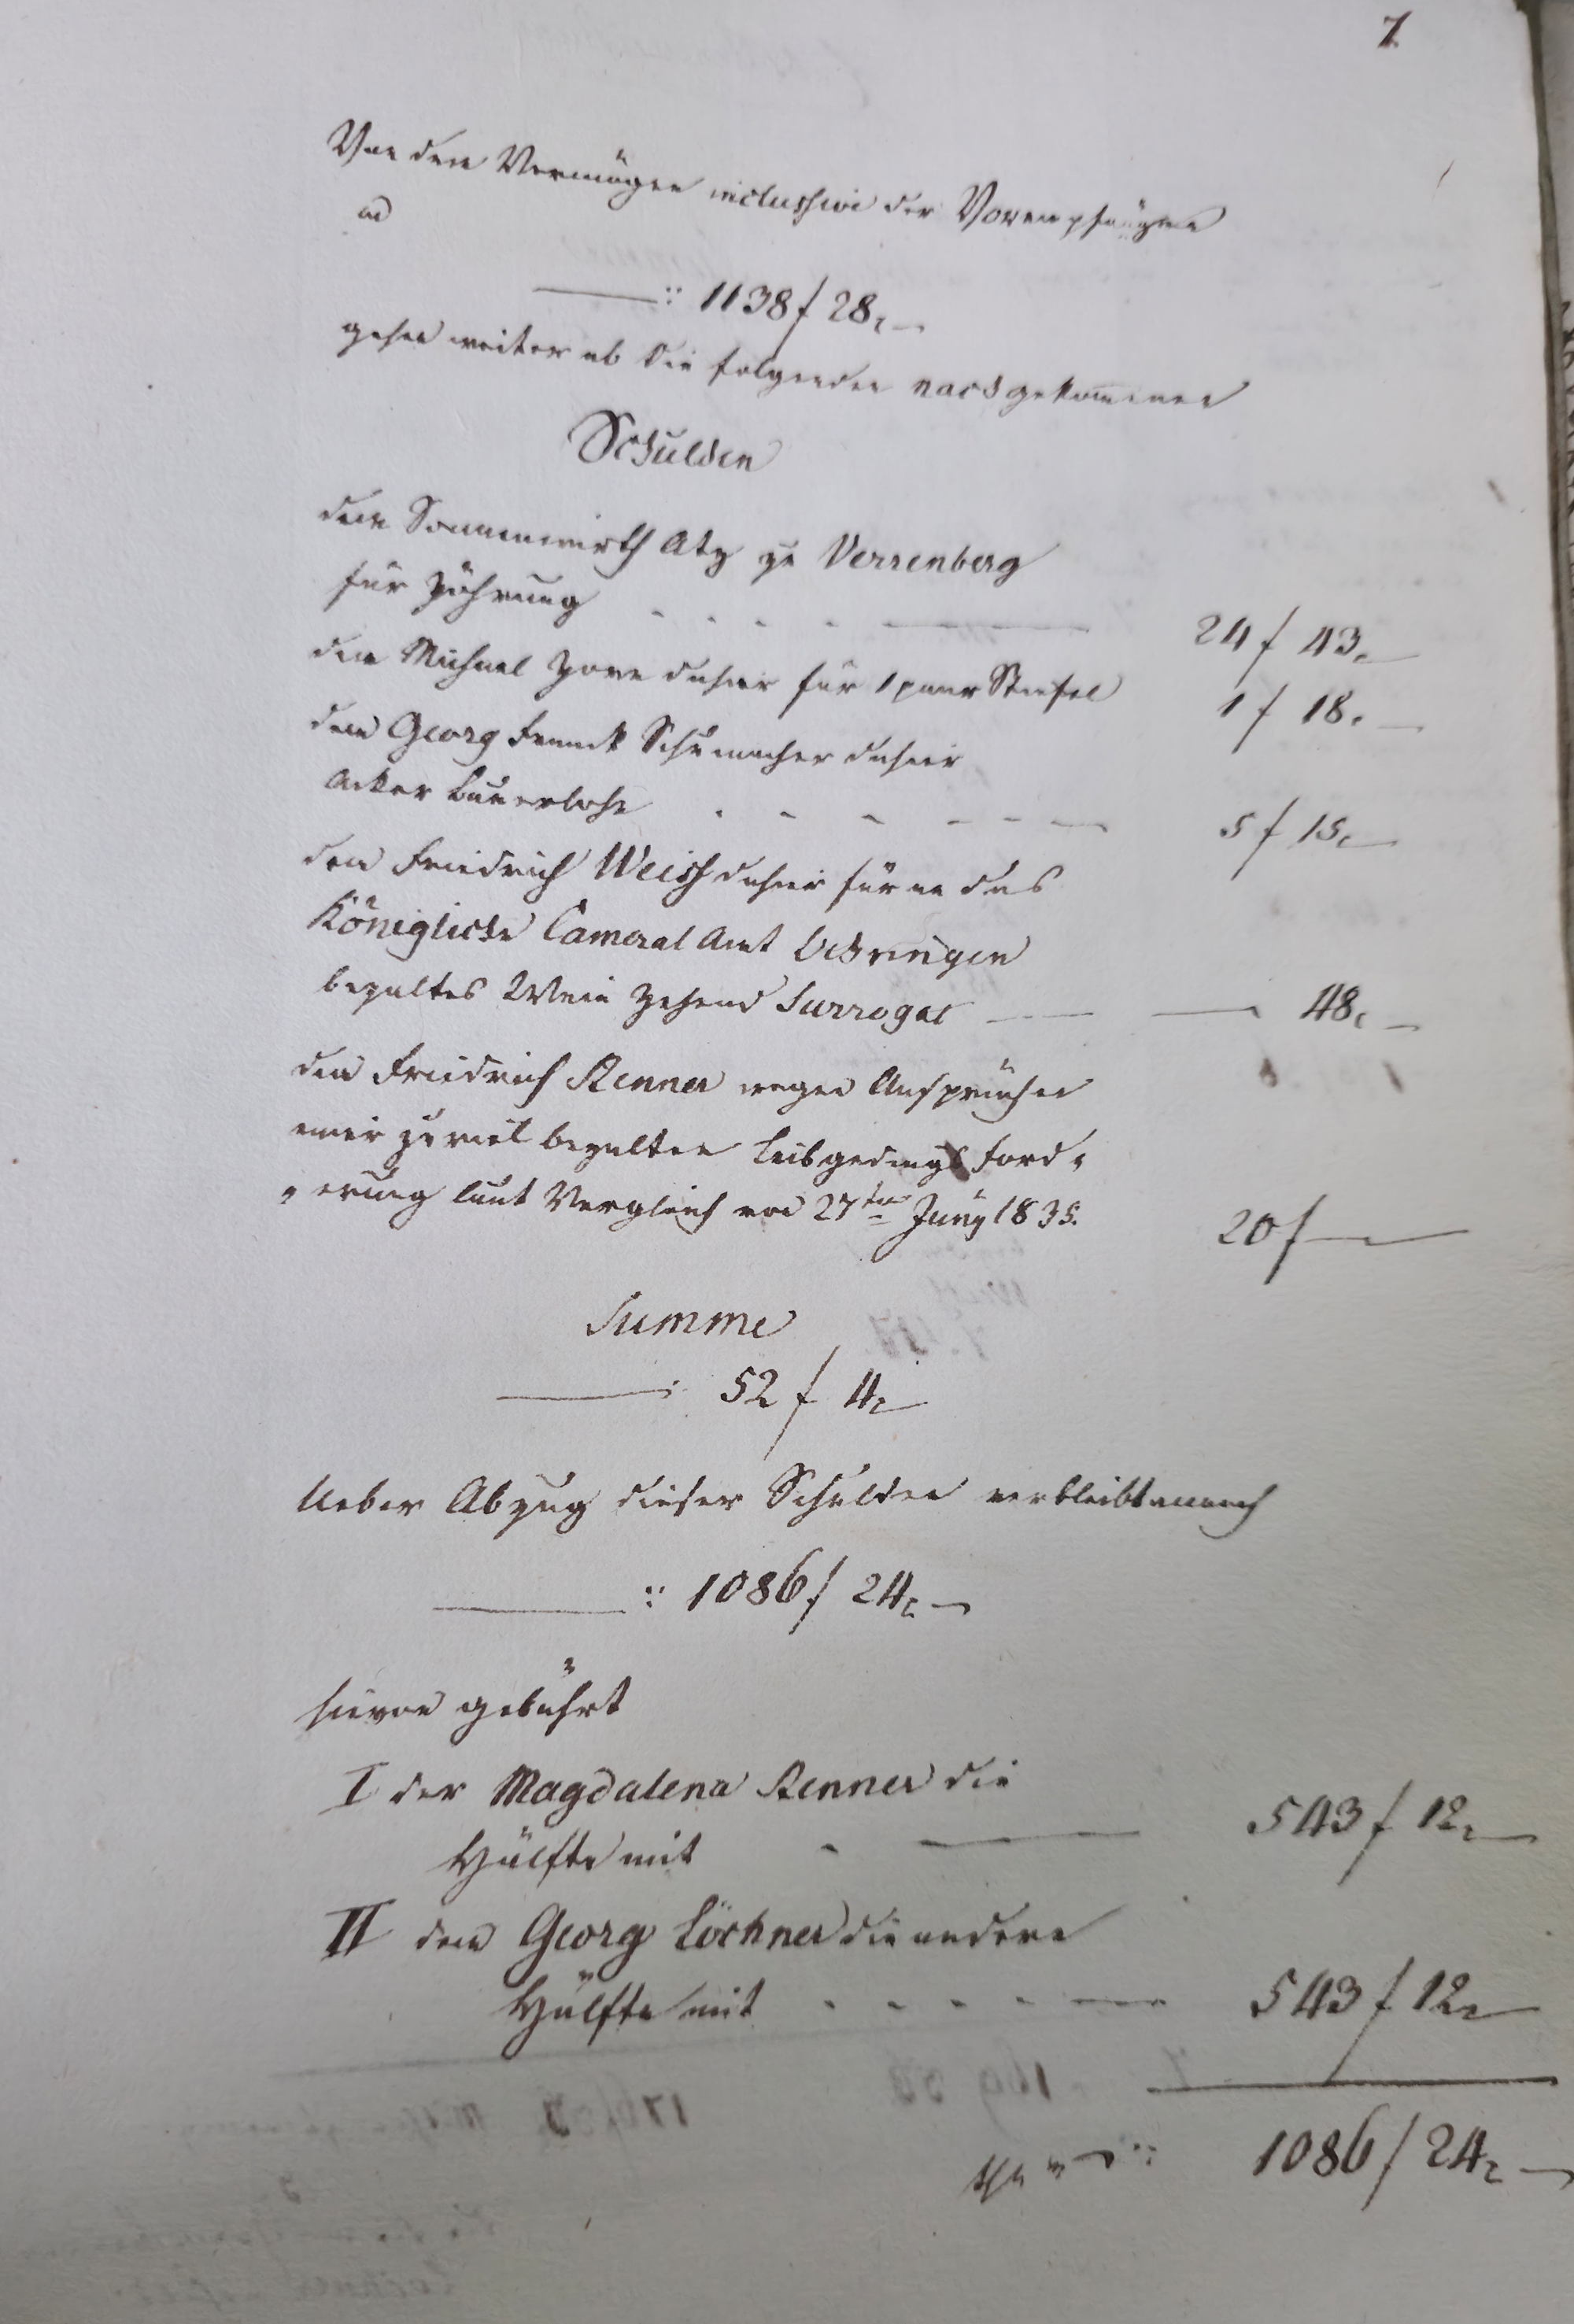 7.
Von dem Vermögen inclussive der Vorempfängen
ad
——:: 1138 f 28 x
gehen weiter ab die folgenden nachgekommenen
Schulden
dem Sonnenwirth Atz zu Verrenberg
für Zöhrung . . . . —— 24 f 43 x
dem Michael Zorn dahier für 1 paar Stiefel 1 f 18 x
dem Georg Franck Schumacher dahier
Acker Bauerlohn . - - - - — 5 f 15 x
dem Friedrich Weiss dahier für an das
Königliche Cameral Amt Oehringen
bezaltes Wein Zehend Surrogat — — 48 x
dem Friedrich Renner wegen Ansprüchen
einer zuviel bezalten Leibgedings Ford„
„erung laut Vergleich von 27ten Juny 1835. 20 f —
Summe
——: 52 f 4 x
Ueber Abzug dieser Schulden verbleibt annoch
——:: 1086 f 24 x
hievon gebührt
I der Magdalena Renner die
Hälfte mit - —— 543 f 12 x
II dem Georg Löchner die andere
Hälfte mit . - - - — 543 f 12 x
:: 1086 f 24 x